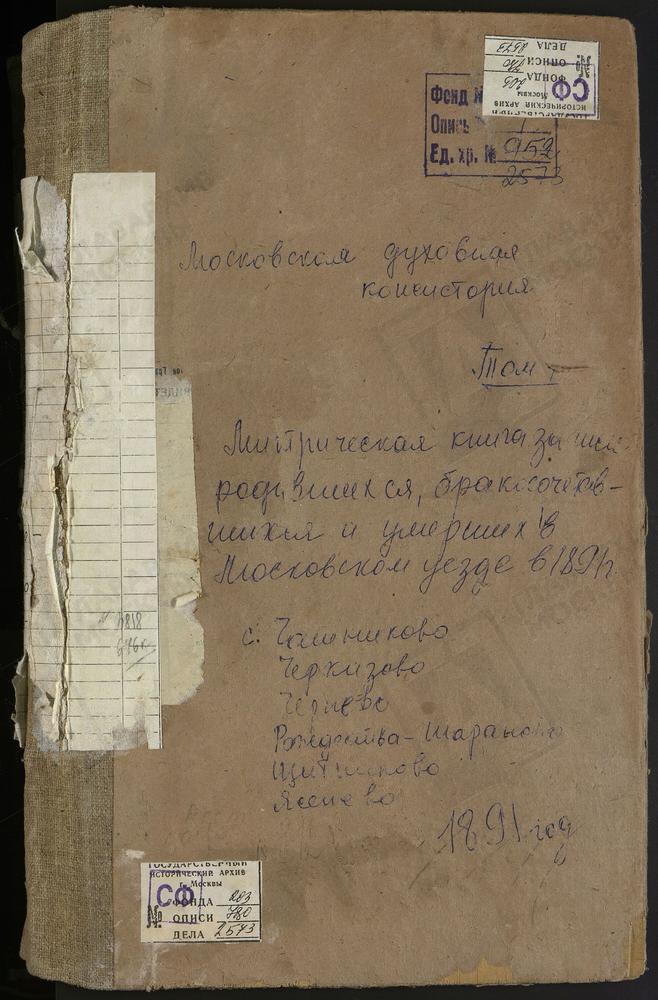 ДЕЛА 2573
ОПИСИ 780
ФОНДА 203
№
СФ
Москвы
ИСТОРИЧЕСКИЙ АРХИВ
Фонд №
Опись 1
Ед. хр. № 952
2573
Московская духовная
консистория
Том
Митрическая книга за
родившихся, бракосочетав-
шихся и умерших в
Московском уезде в 1891г.
с. Чашниково
Черкизово
Чернево
Рождества - Шарапово
Щитниково
Ясенево
1891 год
4818
ГОСУДАРСТВЕННЫЙ
ИСТОРИЧЕСКИЙ АРХИВ
г. Москвы
СФ
ФОНДА 203
№ ОПИСИ 780
ДЕЛА 2573